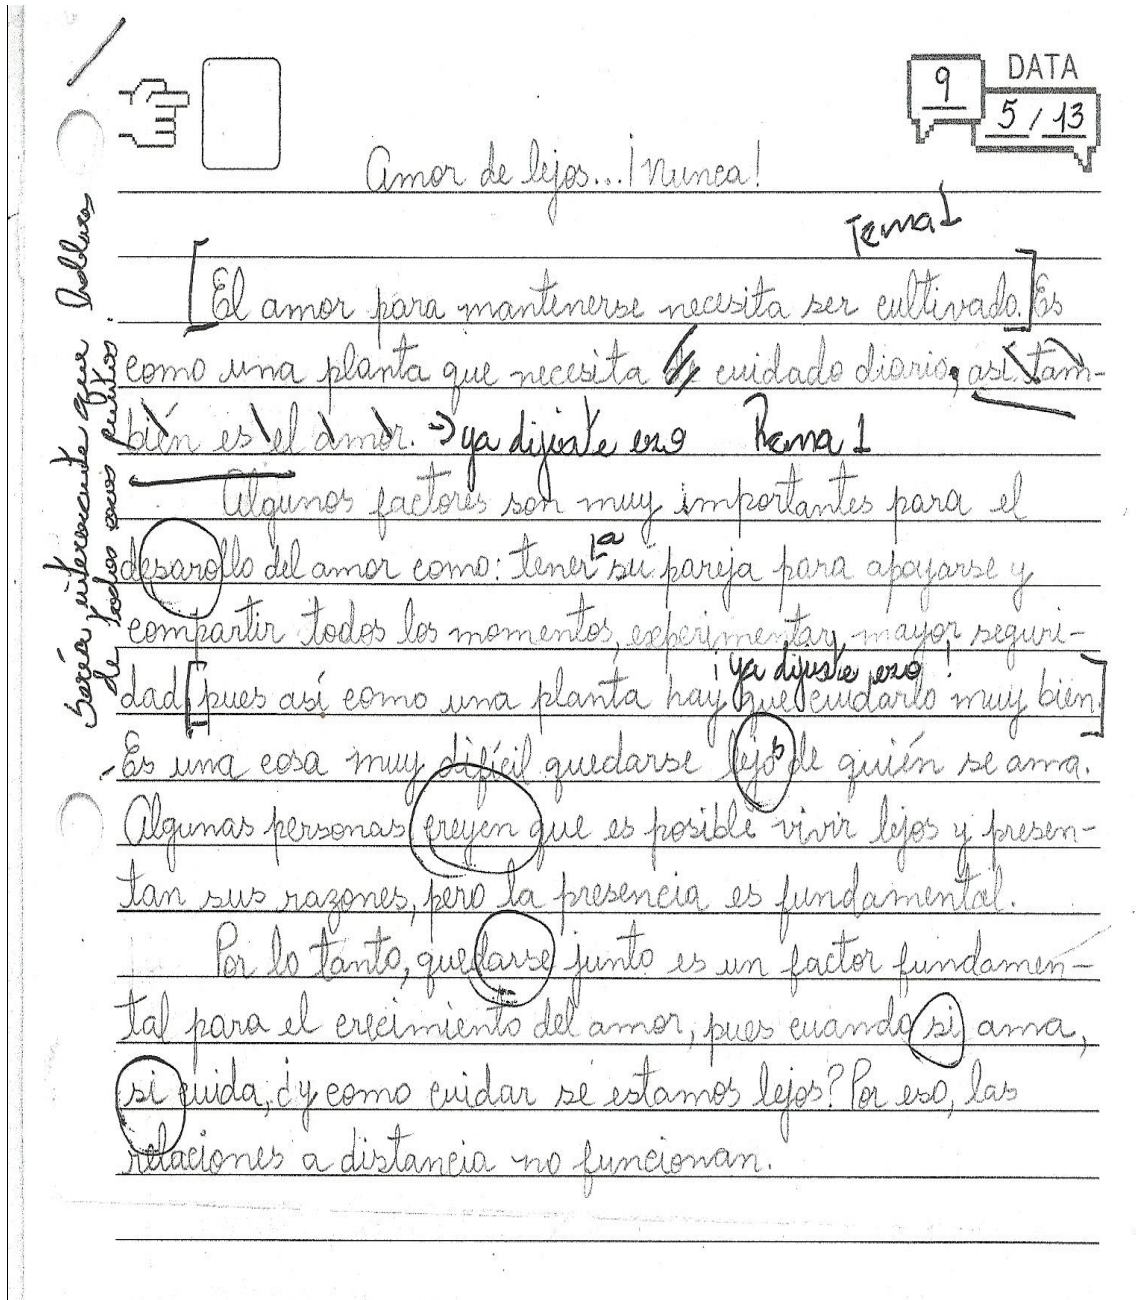 DATA
9 5 / 13
Amor de lejos...¡Nunca!
Tema 1
El amor para mantenerse necesita ser cultivado. Es
como una planta que necesita de cuidado diario, así tam-
bién es el amor. → ya dijiste eso Rema 1
Algunos factores son muy importantes para el
desarollo del amor como: tener la su pareja para apoyarse y
compartir todos los momentos, experimentar mayor seguri-
¡ya dijiste eso!
dad pues así como una planta hay que cuidarlo muy bien.
Es una cosa muy difícil quedarse lejos de quién se ama.
Algunas personas creyen que es posible vivir lejos y presen-
tan sus razones, pero la presencia es fundamental.
Por lo tanto, quedarse junto es un factor fundamen-
tal para el crecimiento del amor, pues cuando si ama,
si cuida, ¿y como cuidar sé estamos lejos? Por eso, las
relaciones a distancia no funcionan.
Sería interesante que hablaras
de todos esos puntos.